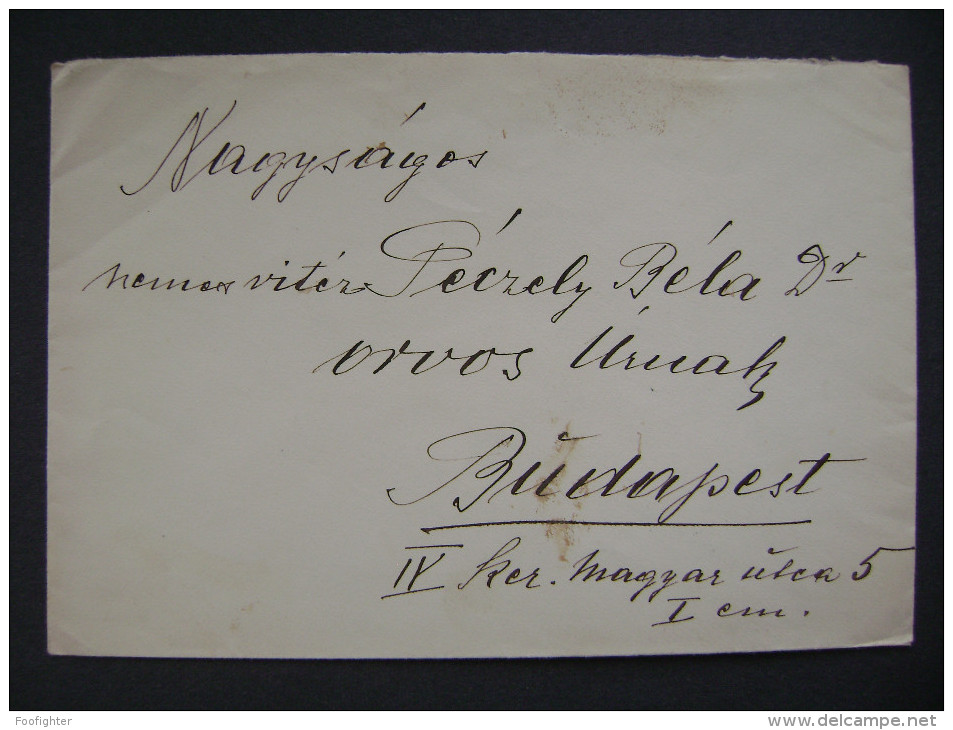 Nagyságos
nemes vitéz Péczely Béla Dr
orvos Úrnak
Budapest
IV ker. Magyar utca 5
I em.
Foofighter
www.delcampe.net